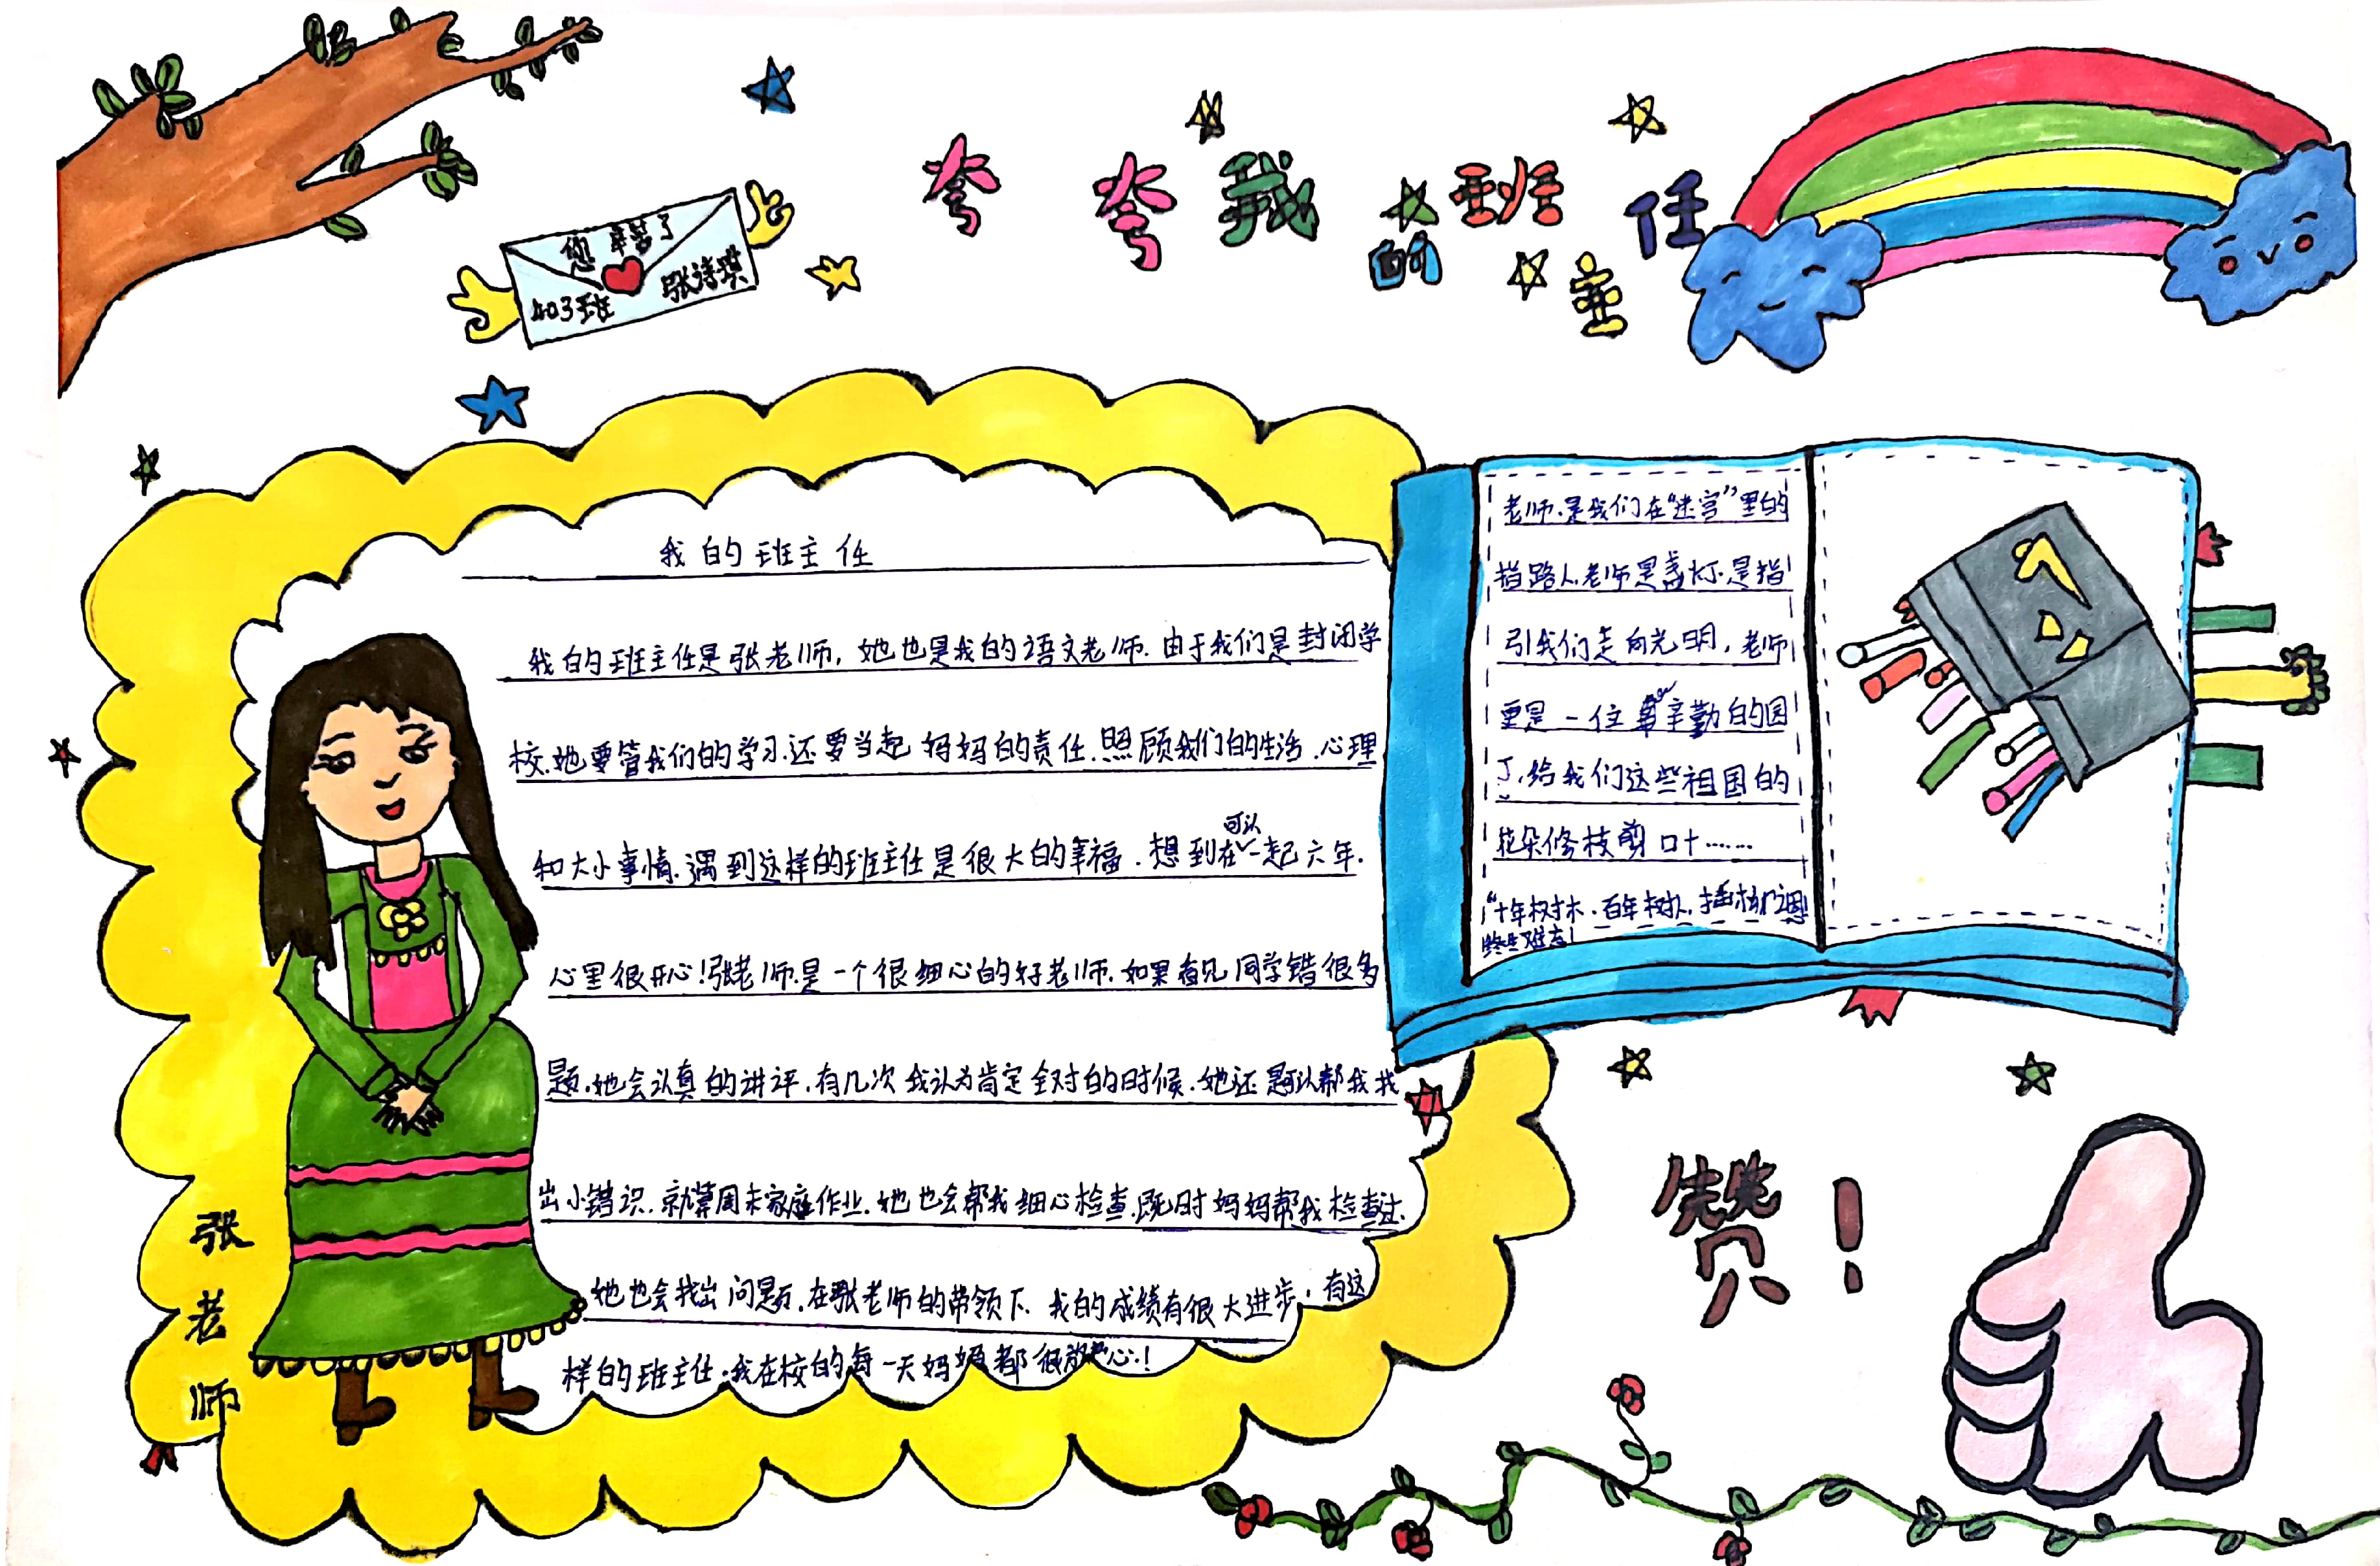 夸夸我的班主任
您辛苦了
403班
张诗琪
我的班主任
我的班主任是张老师，她也是我的语文老师.由于我们是封闭学
校.她要管我们的学习.还要当起妈妈的责任.照顾我们的生活.心理
和大小事情.遇到这样的班主任是很大的幸福.想到可以在一起六年.
心里很开心!张老师.是一个很细心的好老师.如果看见同学错很多
题.她会认真的讲评.有几次我认为肯定全对的时候.她还是可以帮我找
出小错识.就算周末家庭作业.她也会帮我细心检查.既时妈妈帮我检查过.
她也会找出问题.在张老师的带领下.我的成绩有很大进步,有这
样的班主任.我在校的每一天妈妈都很放心.!
张老师
老师.是我们在“迷宫”里的
指路人.老师是盏灯.是指
引我们走向光明，老师
更是一位辛勤的园
丁,给我们这些祖国的
花朵修枝剪叶……
“十年树木.百年树人.插柳之恩
终生难忘!
赞!